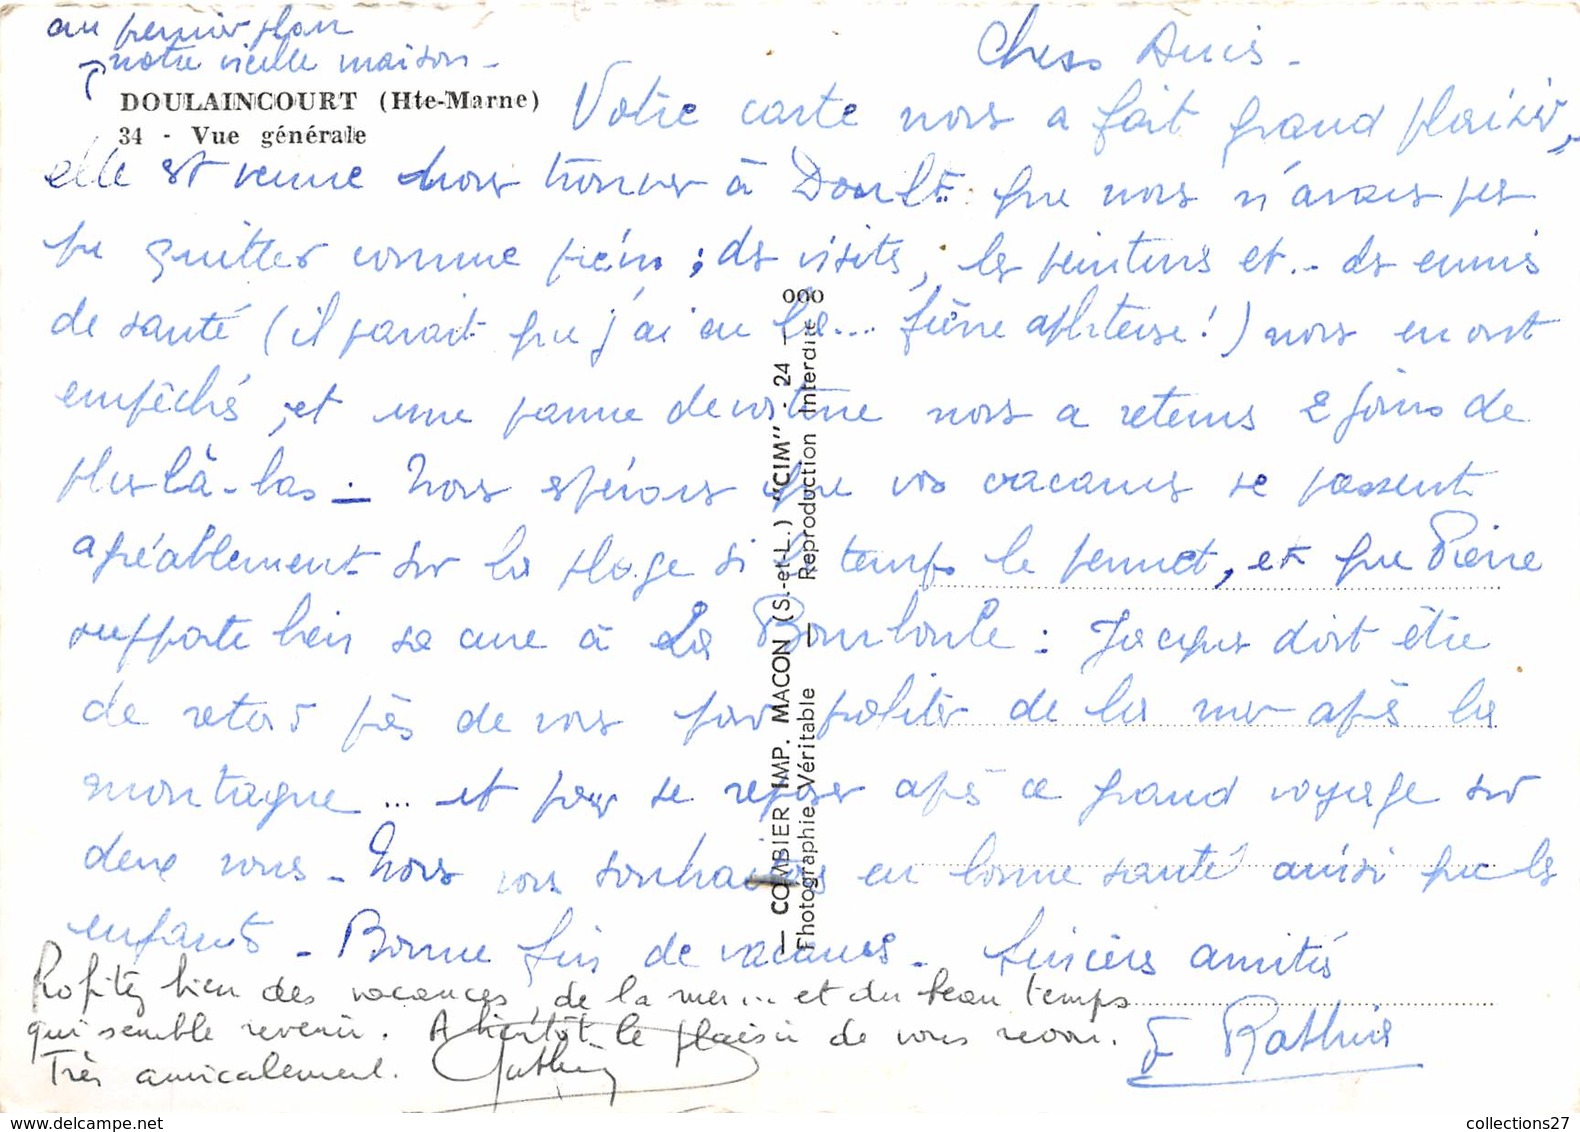 au premier plan
notre vieille maison -
DOULAINCOURT (Hte-Marne)
34 - Vue générale
Chers Amis -
Votre carte nous a fait grand plaisir,
elle est venue nous trouver à Doult. que nous n'avons pas
pu quitter comme prévu ; ds visites, les peintures et... ds ennuis
de santé (il parait que j'ai eu la... fièvre aphteuse !) nous en ont
empêchés, et une panne de voiture nous a retenus 2 jours de
plus là-bas - Nous espérons que vos vacances se passent
agréablement sur la plage si le temps le permet, et que Pierre
supporte bien sa cure à La Bourboule : Jacques doit être
de retour près de vous pour profiter de la mer après la
montagne ... et pour se reposer après ce grand voyage sur
deux roues - Nous vous souhaitons en bonne santé ainsi que les
enfants - Bonne fin de vacances - Sincères amitiés
Profitez bien des vacances, de la mer... et du beau temps
qui semble revenir. A bientôt le plaisir de vous revoir.
Très amicalement.
— COMBIER IMP. MACON (S.-et-L.) "CIM" - 24 - 000
Photographie Véritable — Reproduction Interdite
collections27